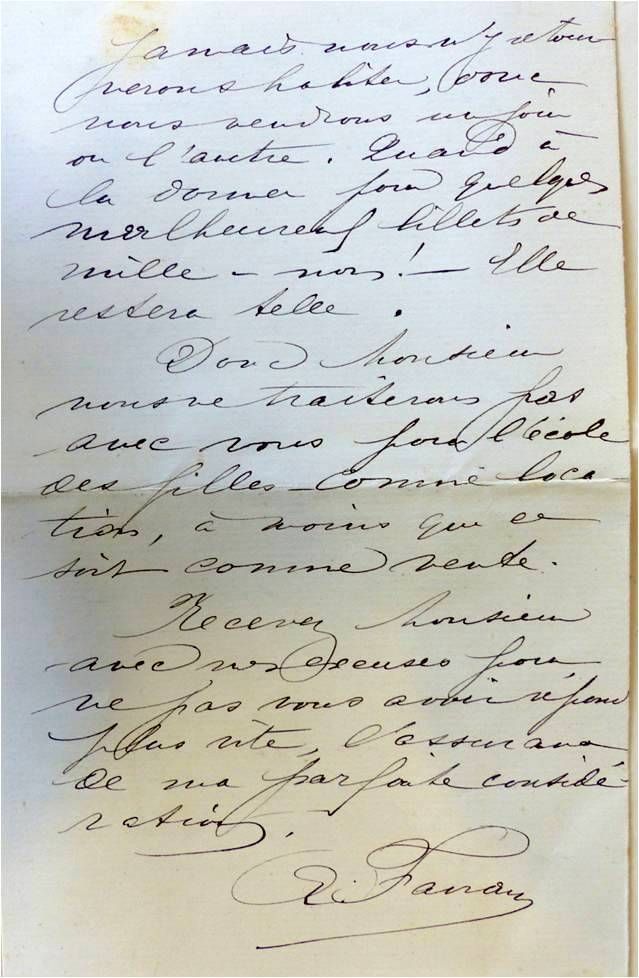 Jamais nous n'y retour
nerons habiter, donc
nous vendrons un jour
ou l'autre. Quand à
la donner pour quelques
malheureux billets de
mille — non! — Elle
restera telle.
Donc Monsieur
nous ne traiterons pas
avec vous pour l'école
des filles — comme loca
tion, à moins que ce
soit comme vente.
Recevez Monsieur
avec nos excuses pour
ne pas vous avoir répond
plus vite, l'assurance
de ma parfaite considé-
ration.